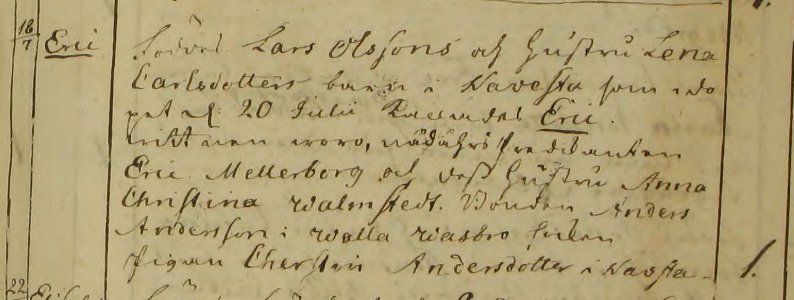 18/7 Eric föddes Lars Olssons och hustru Lena
Carlsdotters barn i Navesta som i do
pet d. 20 Julii kallades Eric.
vittnen woro, nådåhrs predikanten
Eric Mellerborg och dess hustru Anna
Christina Walmstedt. Bonden Anders
Andersson i Walla Wasbro socken
Pigan Cherstin Andersdotter i Navsta 1.
22